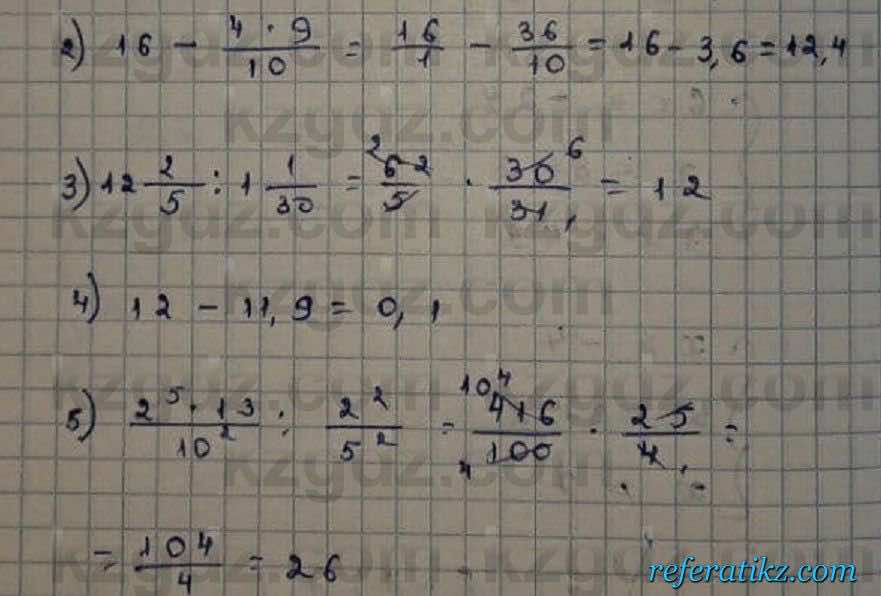 2) 16 - 4 · 9 / 10 = 16 / 1 - 36 / 10 = 16 - 3,6 = 12,4
3) 12 2/5 : 1 1/30 = 62 / 5 · 30 / 31 = 12
4) 12 - 11,9 = 0,1
5) 2^5 · 13 / 10^2 : 2^2 / 5^2 = 416 / 100 · 25 / 4 =
= 104 / 4 = 26
kzgdz.com
referatikz.com